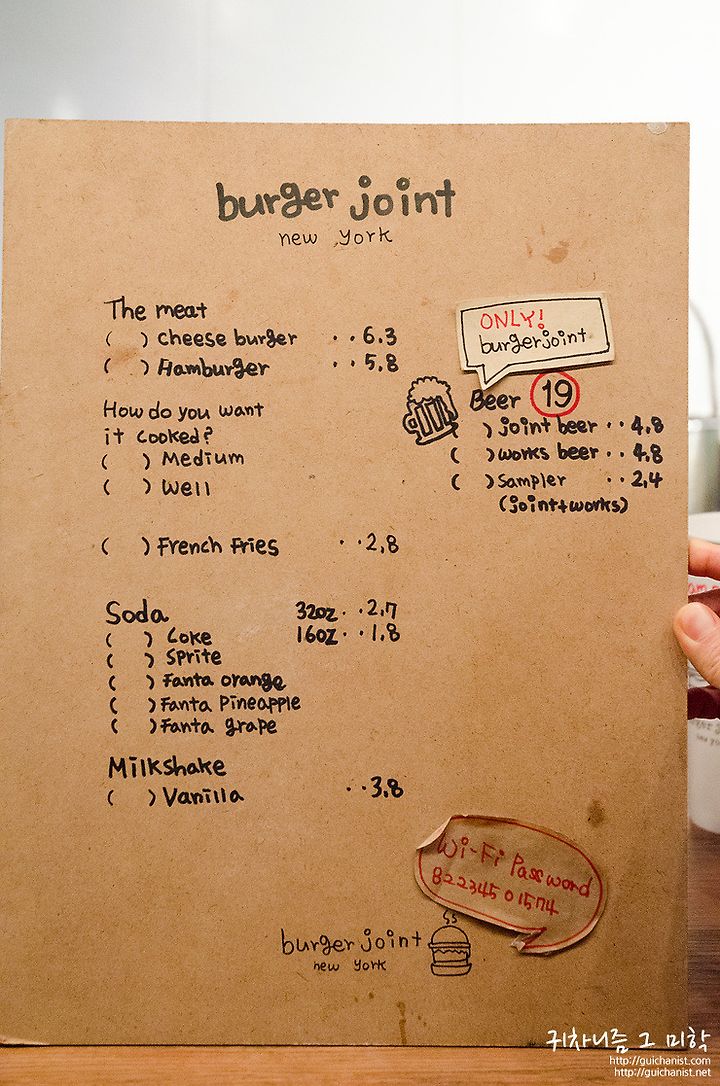 burger joint
new york
The meat
( ) cheese burger ··6.3
( ) Hamburger ··5.8
How do you want
it cooked?
( ) Medium
( ) Well
( ) French Fries ··2.8
Soda 32oz··2.7
( ) Coke 16oz··1.8
( ) Sprite
( ) Fanta orange
( ) Fanta Pineapple
( ) Fanta grape
Milkshake
( ) Vanilla ··3.8
ONLY!
burgerjoint
Beer 19
( ) joint beer ··4.8
( ) works beer ··4.8
( ) Sampler ··2.4
(joint+works)
Wi-Fi Password
82234501574
burger joint
new york
귀차니즘 그 미학
http://guichanist.com
http://guichanist.net